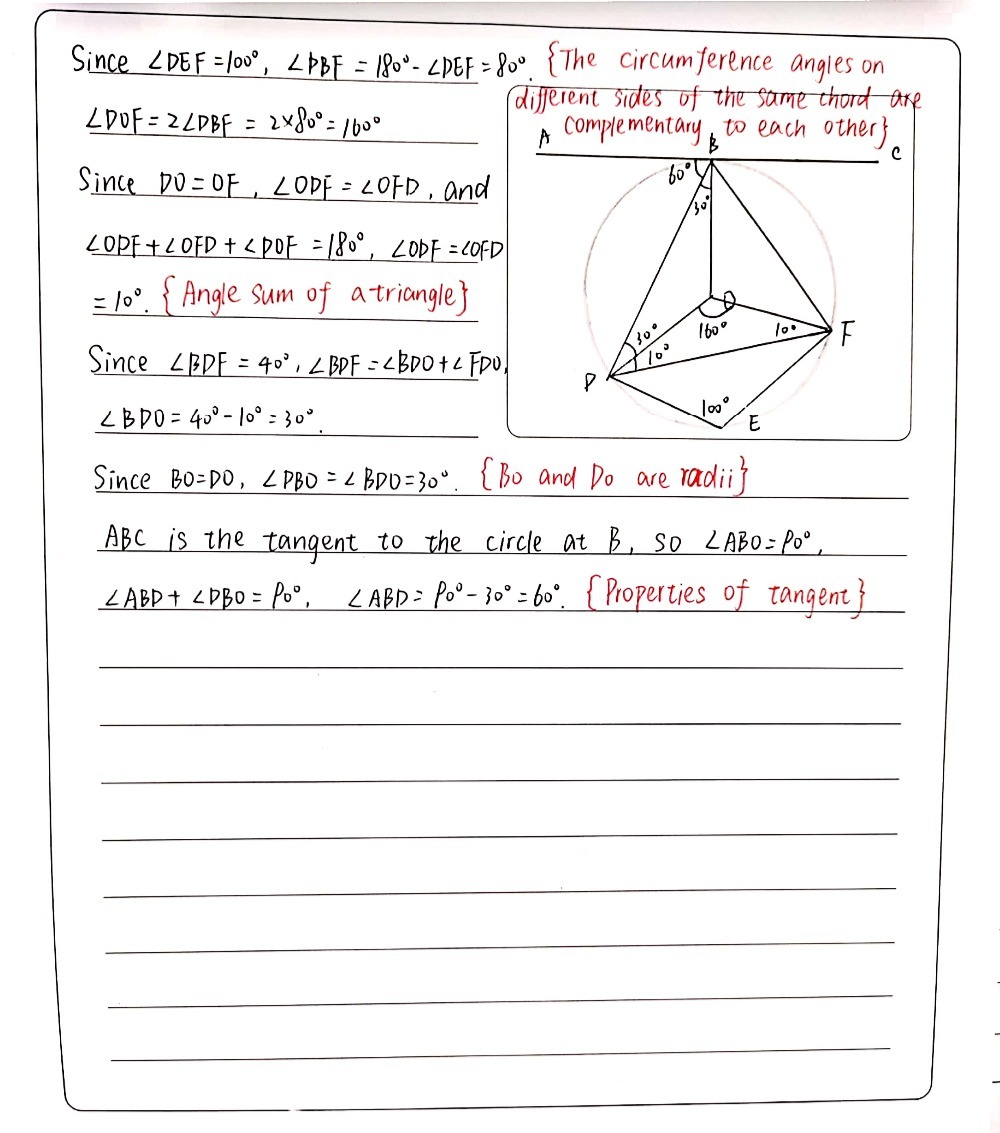 Since ∠DEF = 100°, ∠DBF = 180° - ∠DEF = 80°. {The circumference angles on
different sides of the same chord are
complementary to each other}
∠DOF = 2∠DBF = 2×80° = 160°
Since DO = OF, ∠ODF = ∠OFD, and
∠ODF + ∠OFD + ∠DOF = 180°, ∠ODF = ∠OFD
= 10°. {Angle sum of a triangle}
Since ∠BDF = 40°, ∠BDF = ∠BDO + ∠FDO,
∠BDO = 40° - 10° = 30°.
A B C
60°
30°
O
30° 160° 10° F
10°
D
100°
E
Since BO=DO, ∠DBO = ∠BDO = 30°. {BO and DO are radii}
ABC is the tangent to the circle at B, so ∠ABO = 90°,
∠ABD + ∠DBO = 90°, ∠ABD = 90° - 30° = 60°. {Properties of tangent}